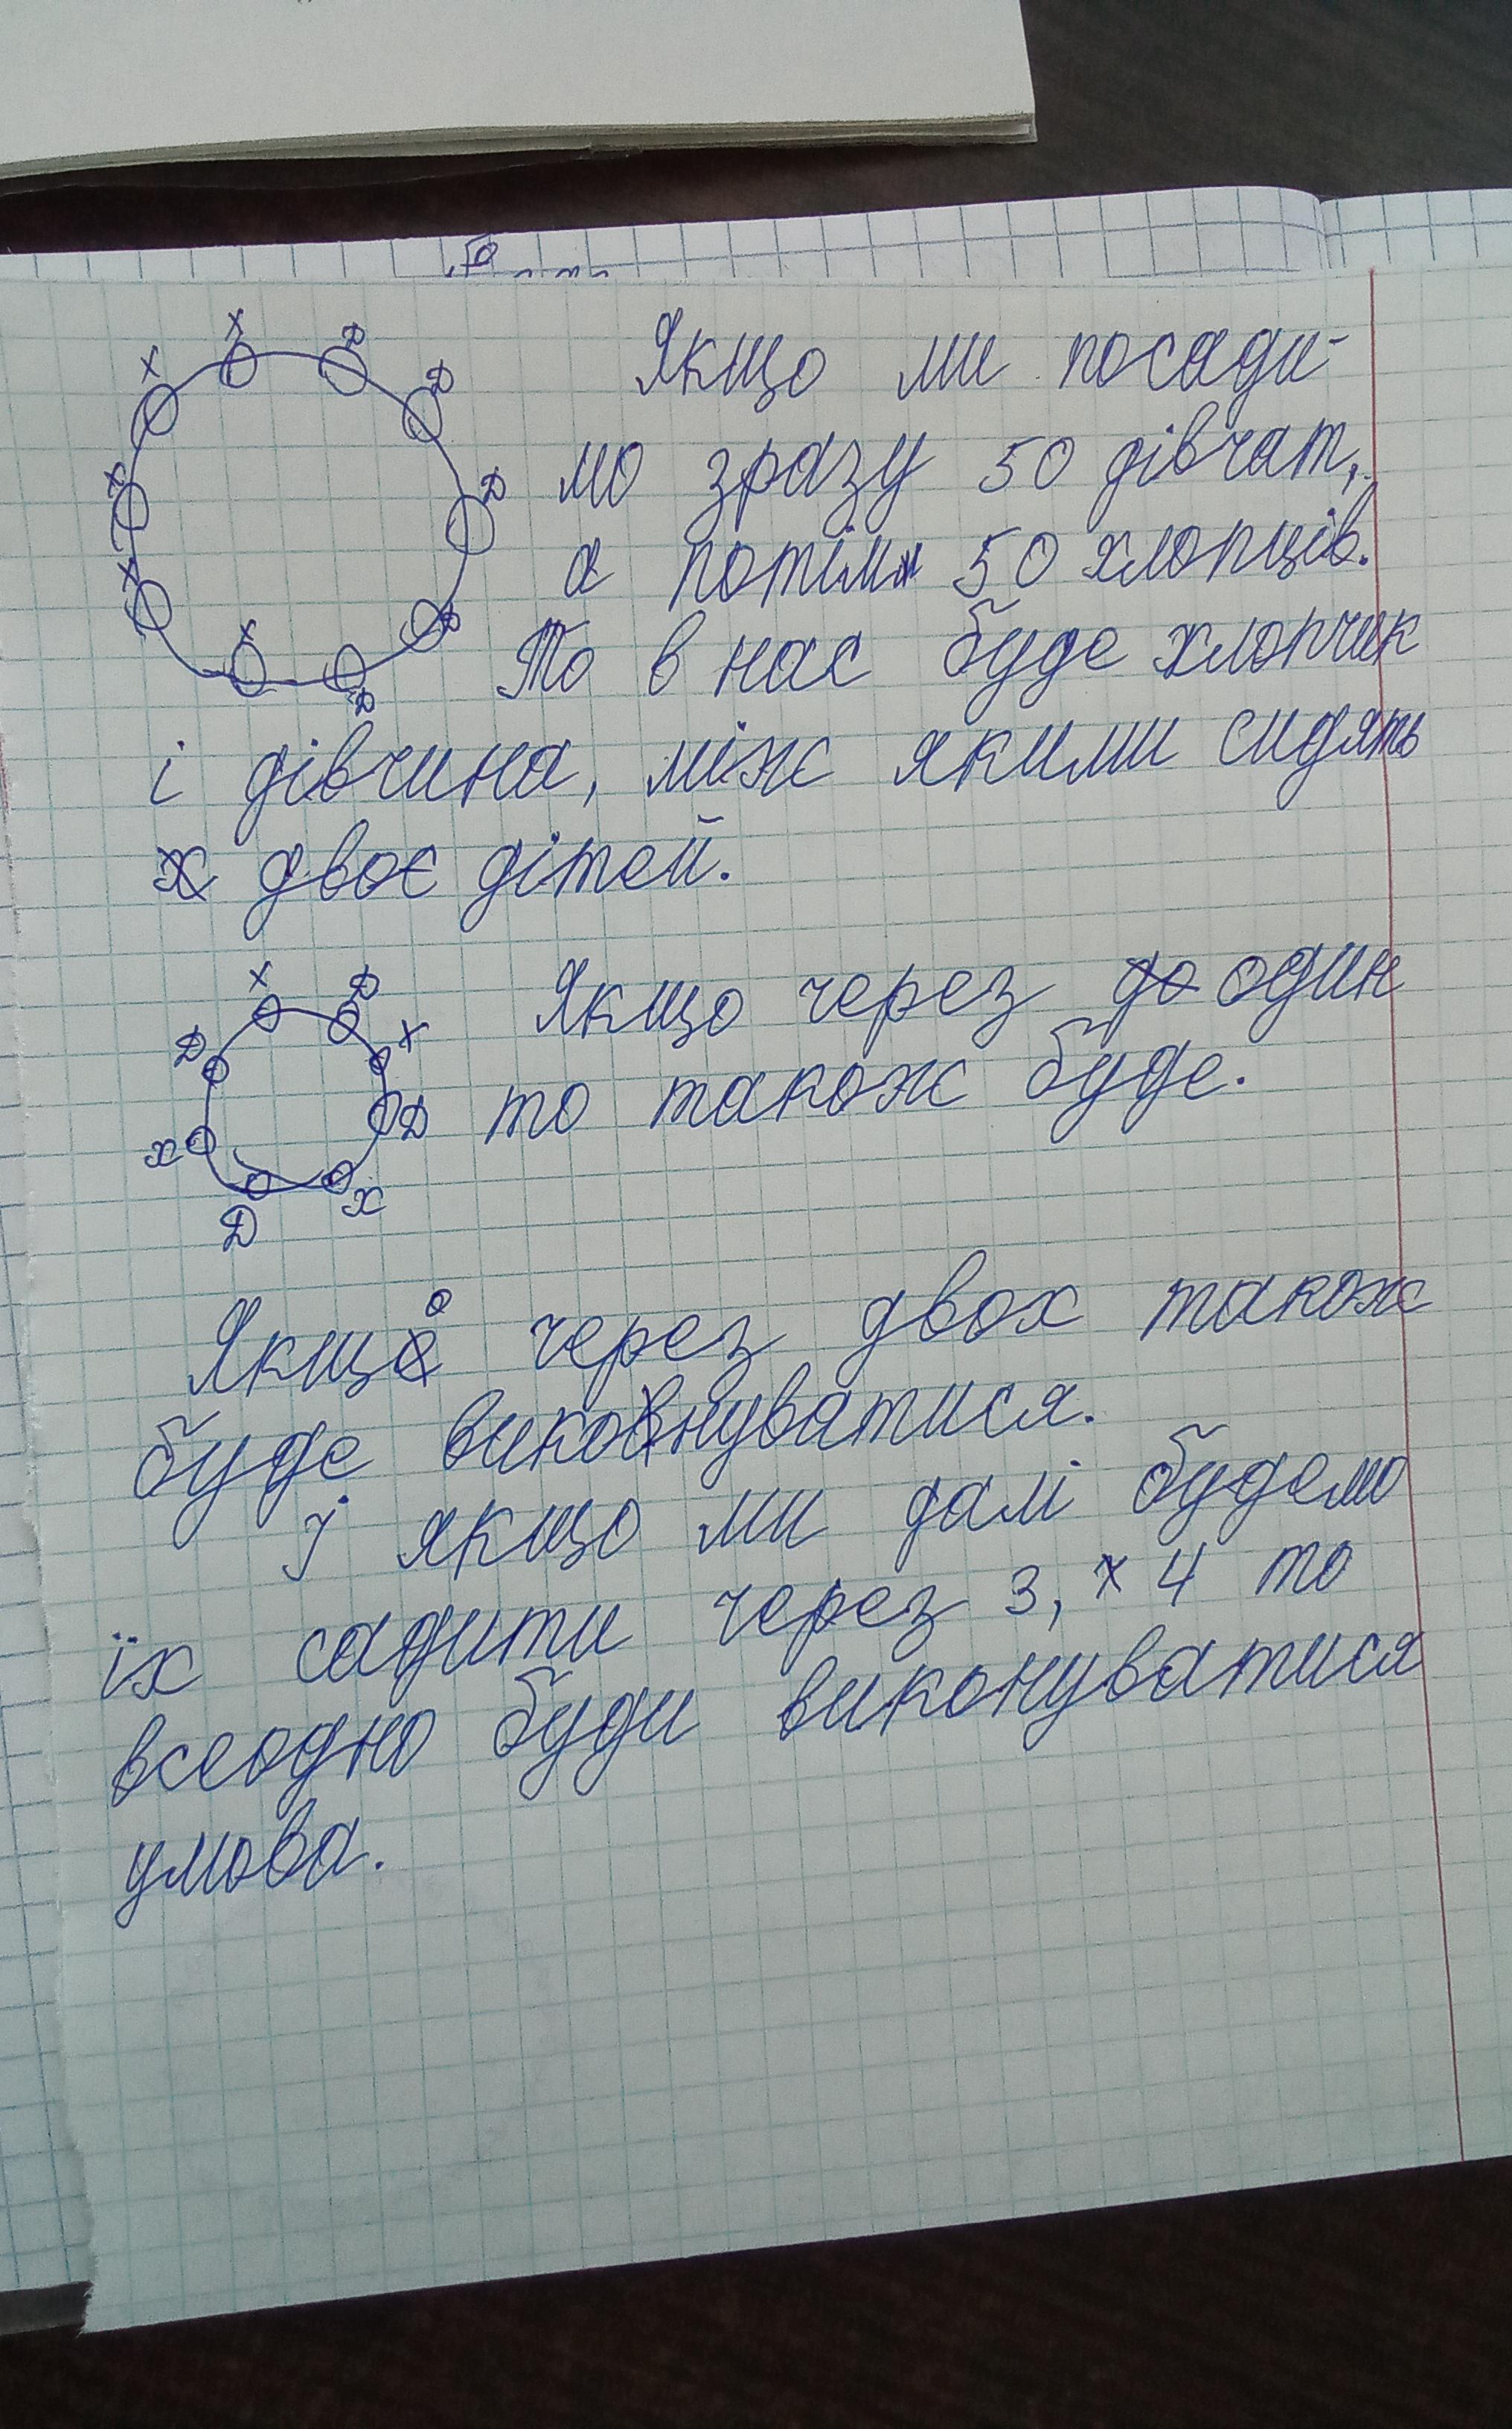 Х Х Д Д Х Д Х Д Х Д
Якщо ми посади-
мо зразу 50 дівчат,
а потім 50 хлопців.
То в нас буде хлопчик
і дівчина, між якими сидять
двоє дітей.
Х Д Д Х Х Д Д Х
Якщо через один
то також буде.
Якщо через двох також
буде виконуватися.
І якщо ми далі будемо
їх садити через 3, 4 то
всеодно буди виконуватися
умова.